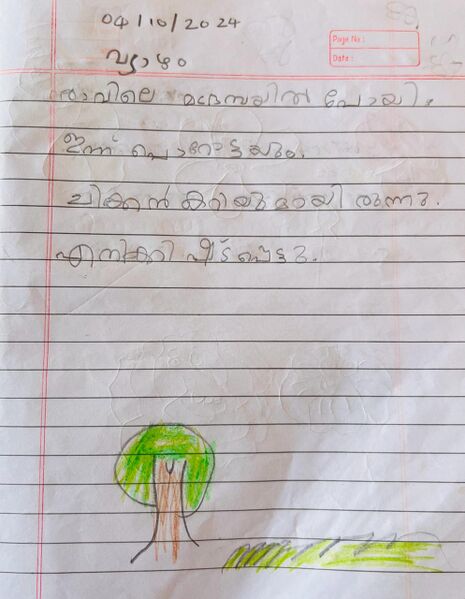 04/10/2024
Page No :
Date :
വ്യാഴം
രാവിലെ മദ്രസയിൽ പോയി.
ഇന്ന് പൊറോട്ടയും.
ചിക്കൻ കറിയുമായി രുന്നു.
എനിക്കി ഷ്ട പ്പെട്ടു.